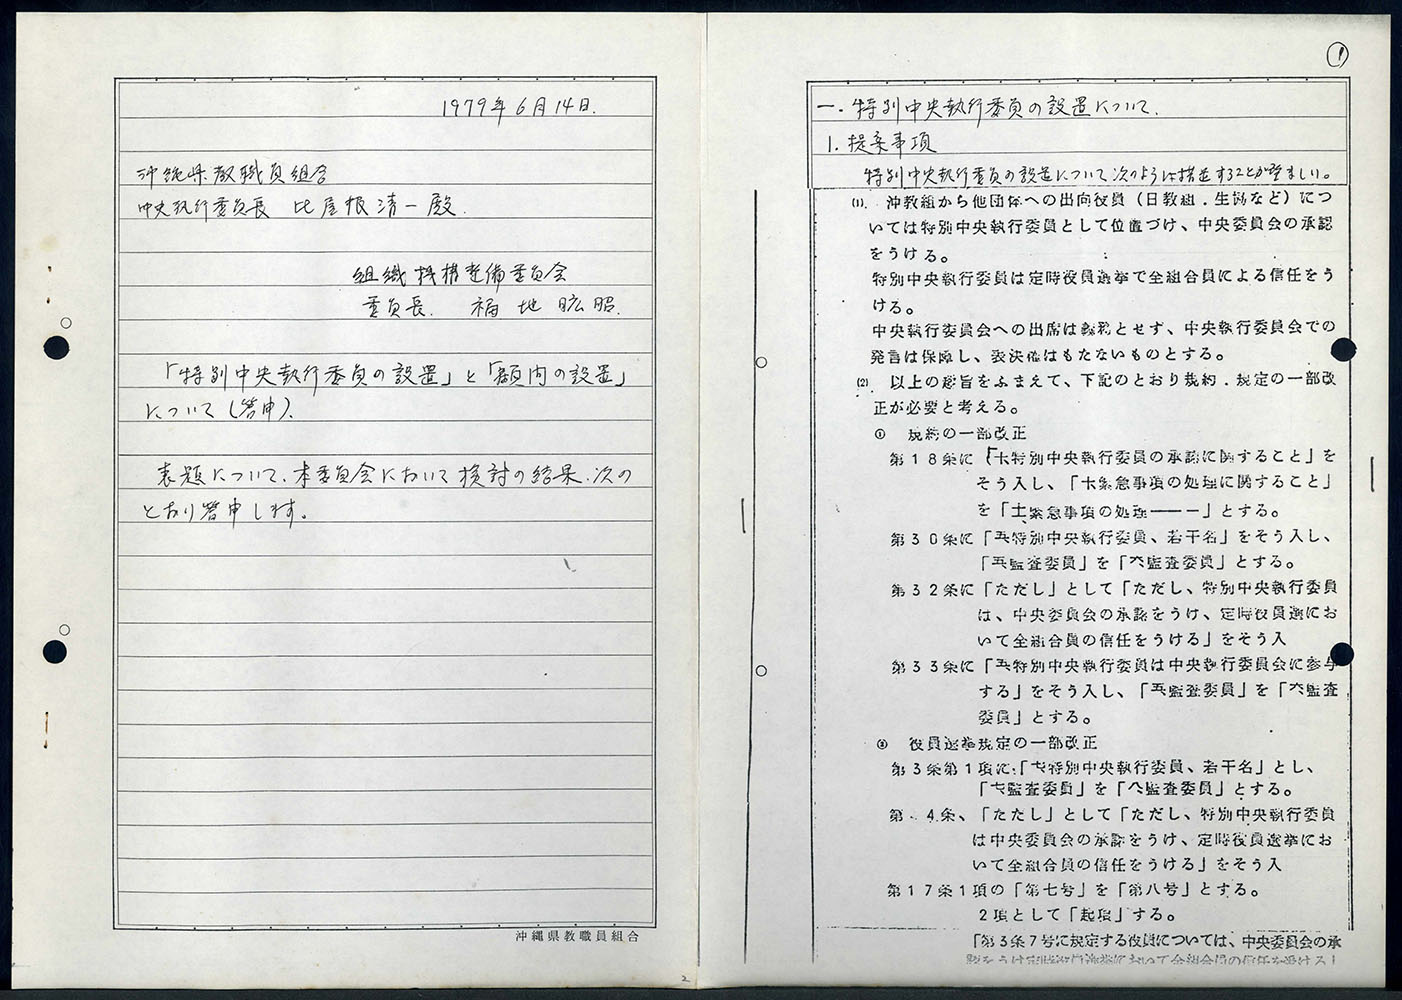 1979年6月14日.
沖縄県教職員組合
中央執行委員長 比屋根清一殿.
組織機構整備委員会
委員長. 福地曠昭.
「特別中央執行委員の設置」と「顧問の設置」
について(答申).
表題について、本委員会において検討の結果、次の
とおり答申します。
沖縄県教職員組合
2
1
一. 特別中央執行委員の設置について.
1. 提案事項
特別中央執行委員の設置について次のように措置することが望ましい。
(1). 沖教組から他団体への出向役員(日教組.生協など)につ
いては特別中央執行委員として位置づけ、中央委員会の承認
をうける。
特別中央執行委員は定時役員選挙で全組合員による信任をう
ける。
中央執行委員会への出席は義務とせず、中央執行委員会での
発言は保障し、表決権はもたないものとする。
(2) 以上の趣旨をふまえて、下記のとおり規約.規定の一部改
正が必要と考える。
① 規約の一部改正
第18条に「十特別中央執行委員の承認に関すること」を
そう入し、「十緊急事項の処理に関すること」
を「十一緊急事項の処理――」とする。
第30条に「五特別中央執行委員、若干名」をそう入し、
「五監査委員」を「六監査委員」とする。
第32条に「ただし」として「ただし、特別中央執行委員
は、中央委員会の承認をうけ、定時役員選にお
いて全組合員の信任をうける」をそう入
第33条に「五特別中央執行委員は中央執行委員会に参与
する」をそう入し、「五監査委員」を「六監査
委員」とする。
② 役員選挙規定の一部改正
第3条第1項に「七特別中央執行委員、若干名」とし、
「七監査委員」を「八監査委員」とする。
第4条、「ただし」として「ただし、特別中央執行委員
は中央委員会の承認をうけ、定時役員選挙にお
いて全組合員の信任をうける」をそう入
第17条1項の「第七号」を「第八号」とする。
2項として「起項」する。
「第3条7号に規定する役員については、中央委員会の承
認をうけ定時役員選挙において全組合員の信任を受ける」